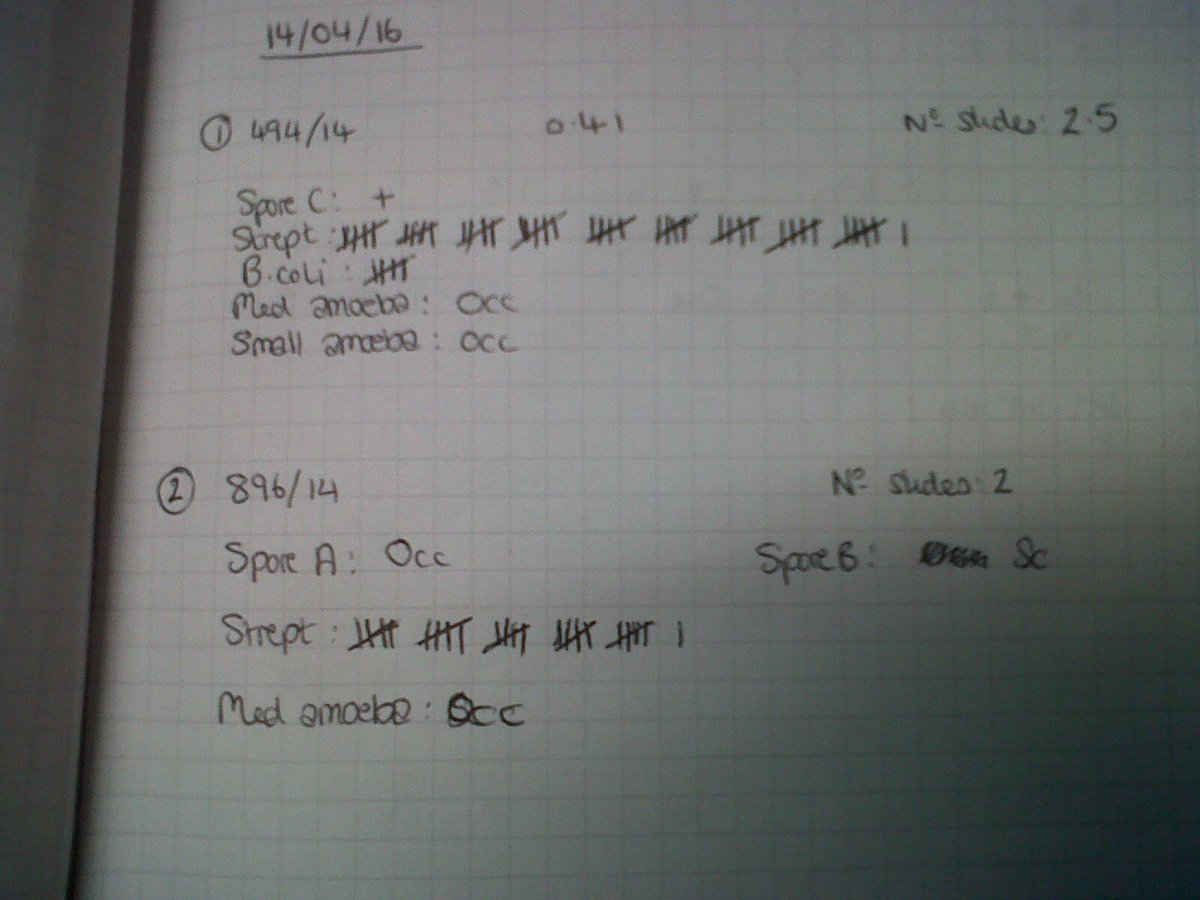 14/04/16
① 494/14 0.41 Nº slides: 2.5
Spore C: +
Strept: 卌 卌 卌 卌 卌 卌 卌 卌 卌 |
B.coli: 卌
Med amoeba: Occ
Small amoeba: Occ
② 896/14 Nº slides: 2
Spore A: Occ Spore B: Sc
Strept: 卌 卌 卌 卌 卌 |
Med amoeba: Occ